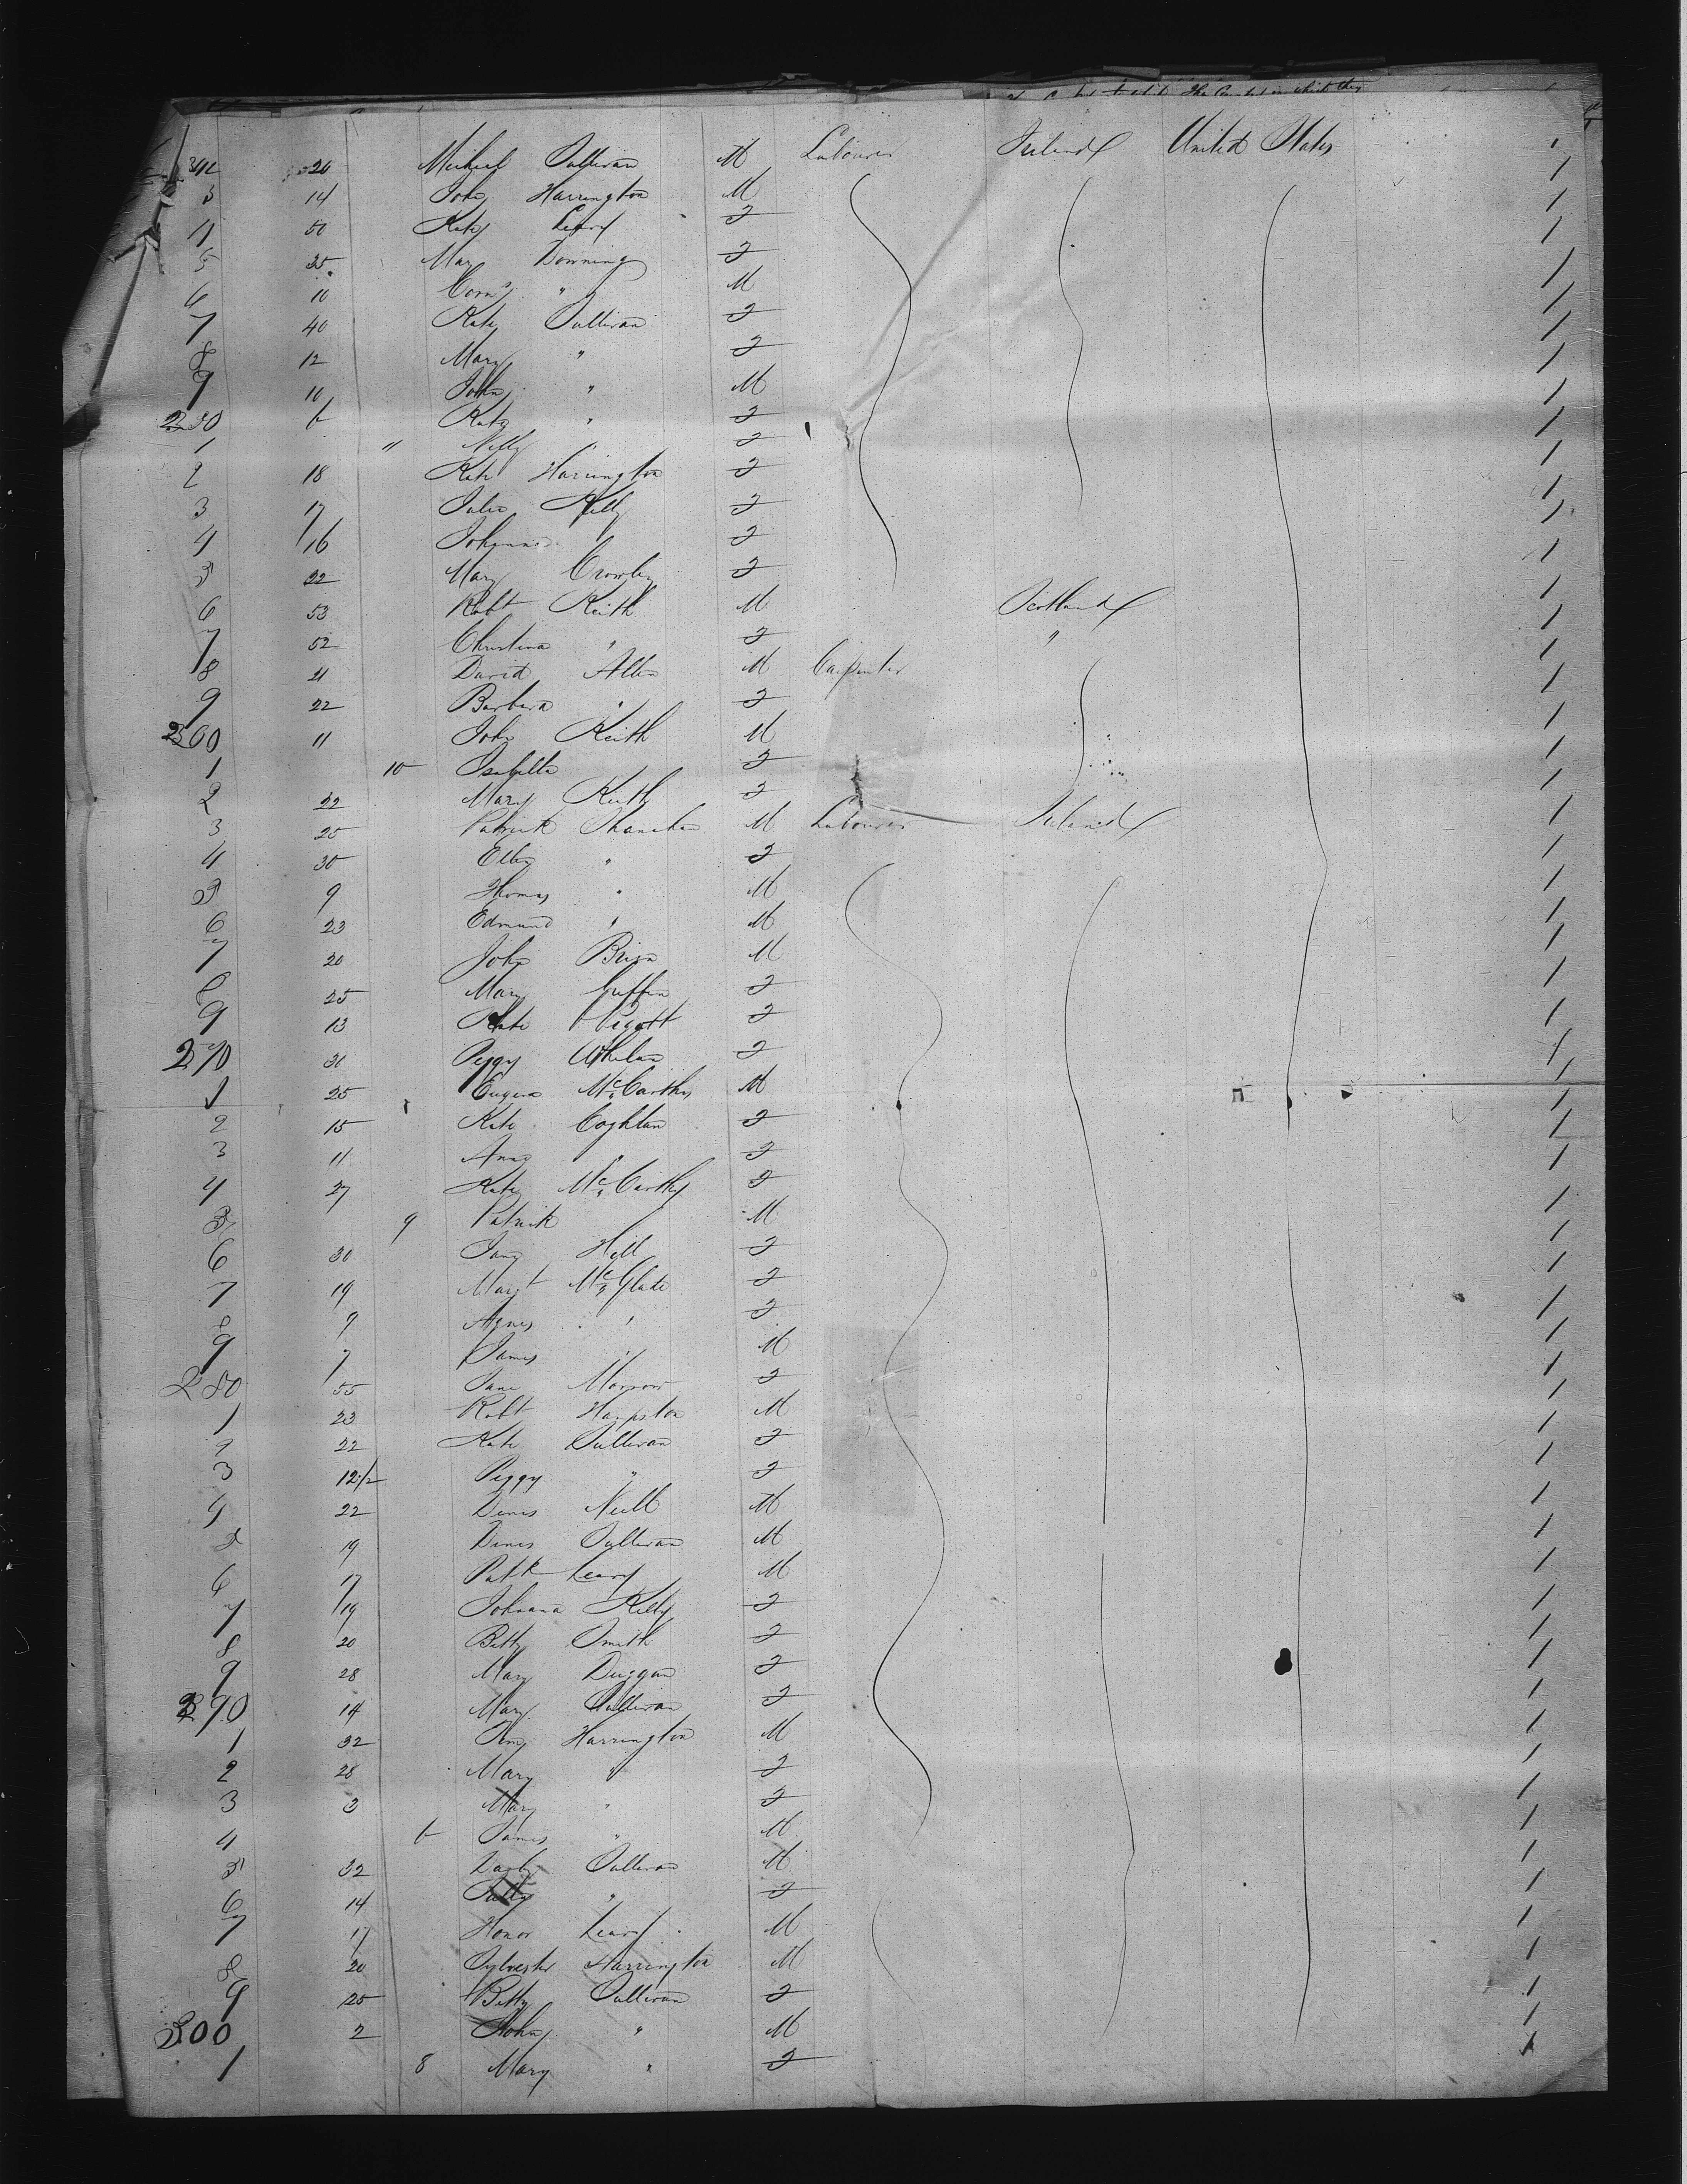 The Country in which they
242 20 Michael Sullivan M Labourer Ireland United States 1
3 14 John Harrington M 1
4 50 Katy Leary F 1
5 25 Mary Downing F 1
6 10 Corns " M 1
7 40 Katy Sullivan F 1
8 12 Mary " F 1
9 10 John " M 1
250 6 Katy " F 1
1 11 Nelly F 1
2 18 Kate Harrington F 1
3 17 Julia Kelly F 1
4 16 Johanna F 1
5 22 Mary Crowley F 1
6 53 Robt Keith M Scotland 1
7 52 Christina " F " 1
8 21 David Allen M Carpenter 1
9 22 Barbara " F 1
260 11 John Keith M 1
1 10 Isabella F 1
2 22 Mary Keith F 1
3 25 Patrick Shanahan M Labourer Ireland 1
4 30 Ellen " F 1
5 9 Thomas " M 1
6 23 Edmund " M 1
7 20 John Brien M 1
8 25 Mary Griffin F 1
9 13 Kate Pigott F 1
270 31 Peggy Whelan F 1
1 25 Eugene McCarthy M 1
2 15 Kate Coghlan F 1
3 11 Anne F 1
4 27 Kate McCarthy F 1
5 9 Patrick M 1
6 30 Jane Hill F 1
7 19 Margt McGlade F 1
8 9 Agnes " F 1
9 7 James " M 1
280 55 Jane Morrow F 1
1 23 Robt Hampston M 1
2 22 Kate Sullivan F 1
3 12 1/2 Peggy " F 1
4 22 Denis Neill M 1
5 19 Denis Sullivan M 1
6 17 Patk Leary M 1
7 19 Johanna Kelly F 1
8 20 Betty Smith F 1
9 28 Mary Duggan F 1
290 14 Mary Sullivan F 1
1 32 Harrington M 1
2 28 Mary " F 1
3 3 Mary " F 1
4 6 James " M 1
5 32 Darby Sullivan M 1
6 14 " F 1
7 17 Honor Leary M 1
8 20 Sylvester Harrington M 1
9 25 Betty Sullivan F 1
300 2 John " M 1
1 8 Mary " F